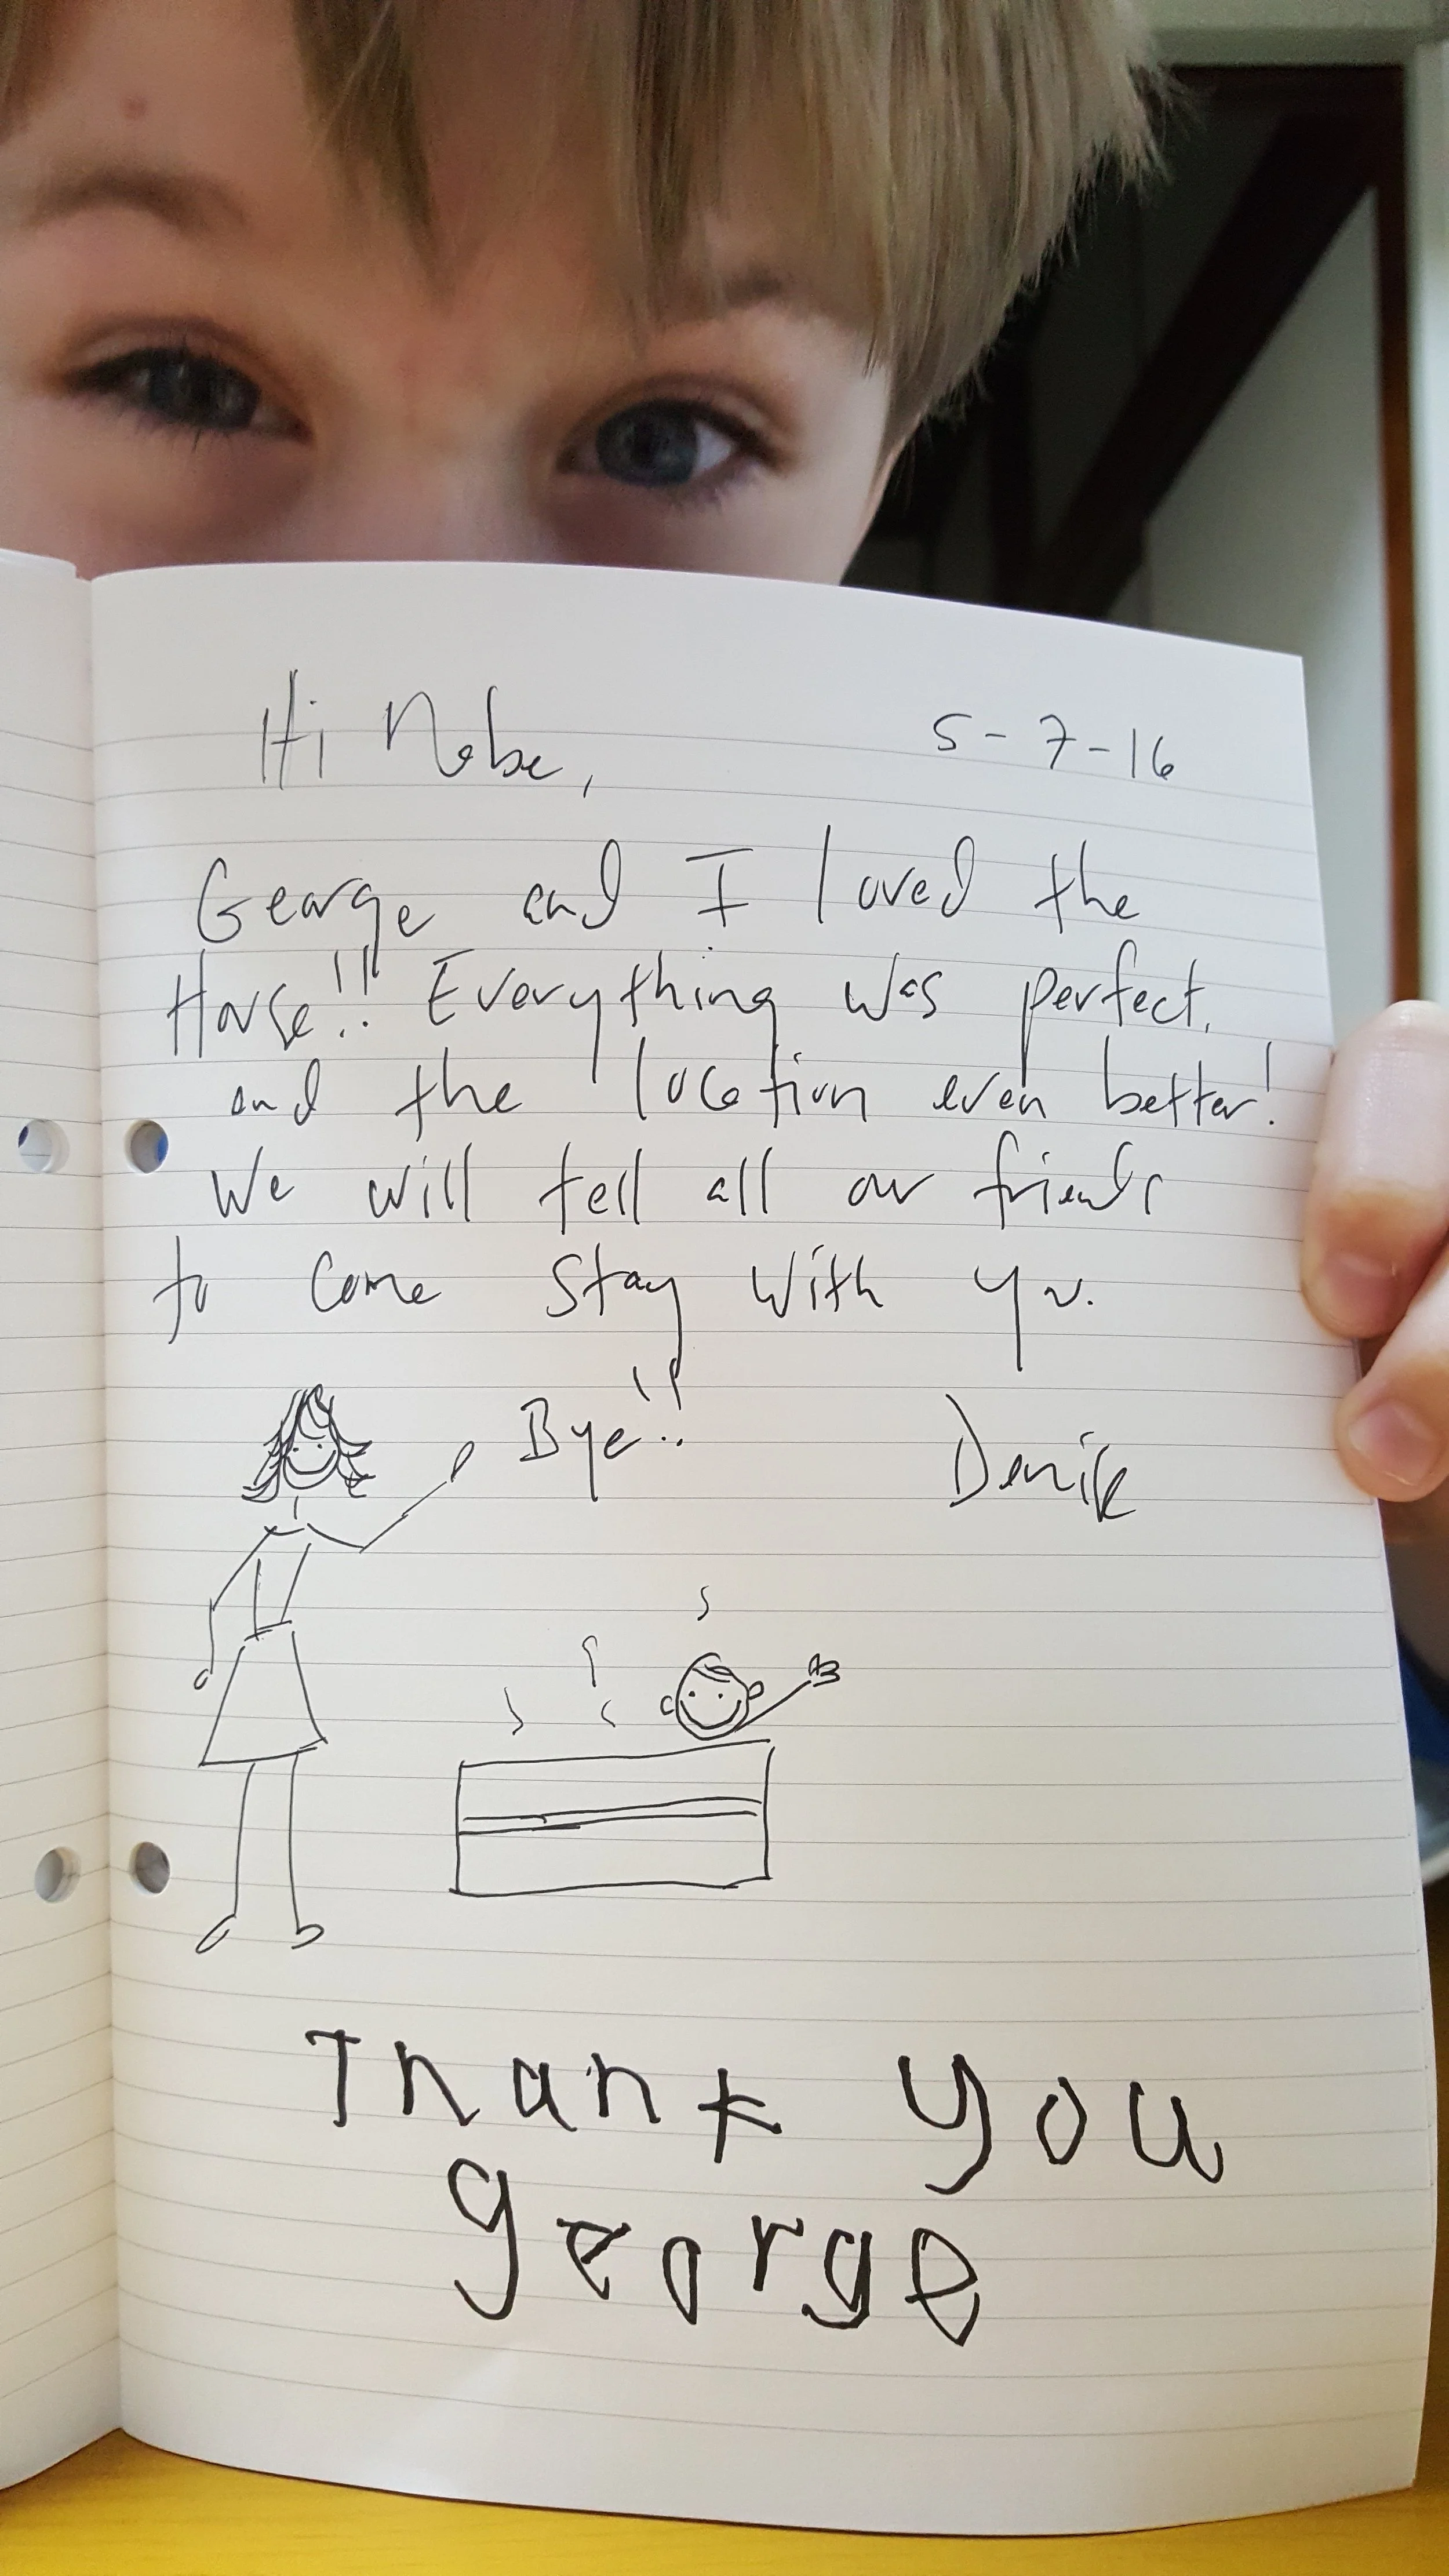 Hi Nobe,
5-7-16
George and I loved the
House!! Everything was perfect.
and the location even better!
We will tell all our friends
to come stay with you.
Bye!!
Denise
Thank you
george